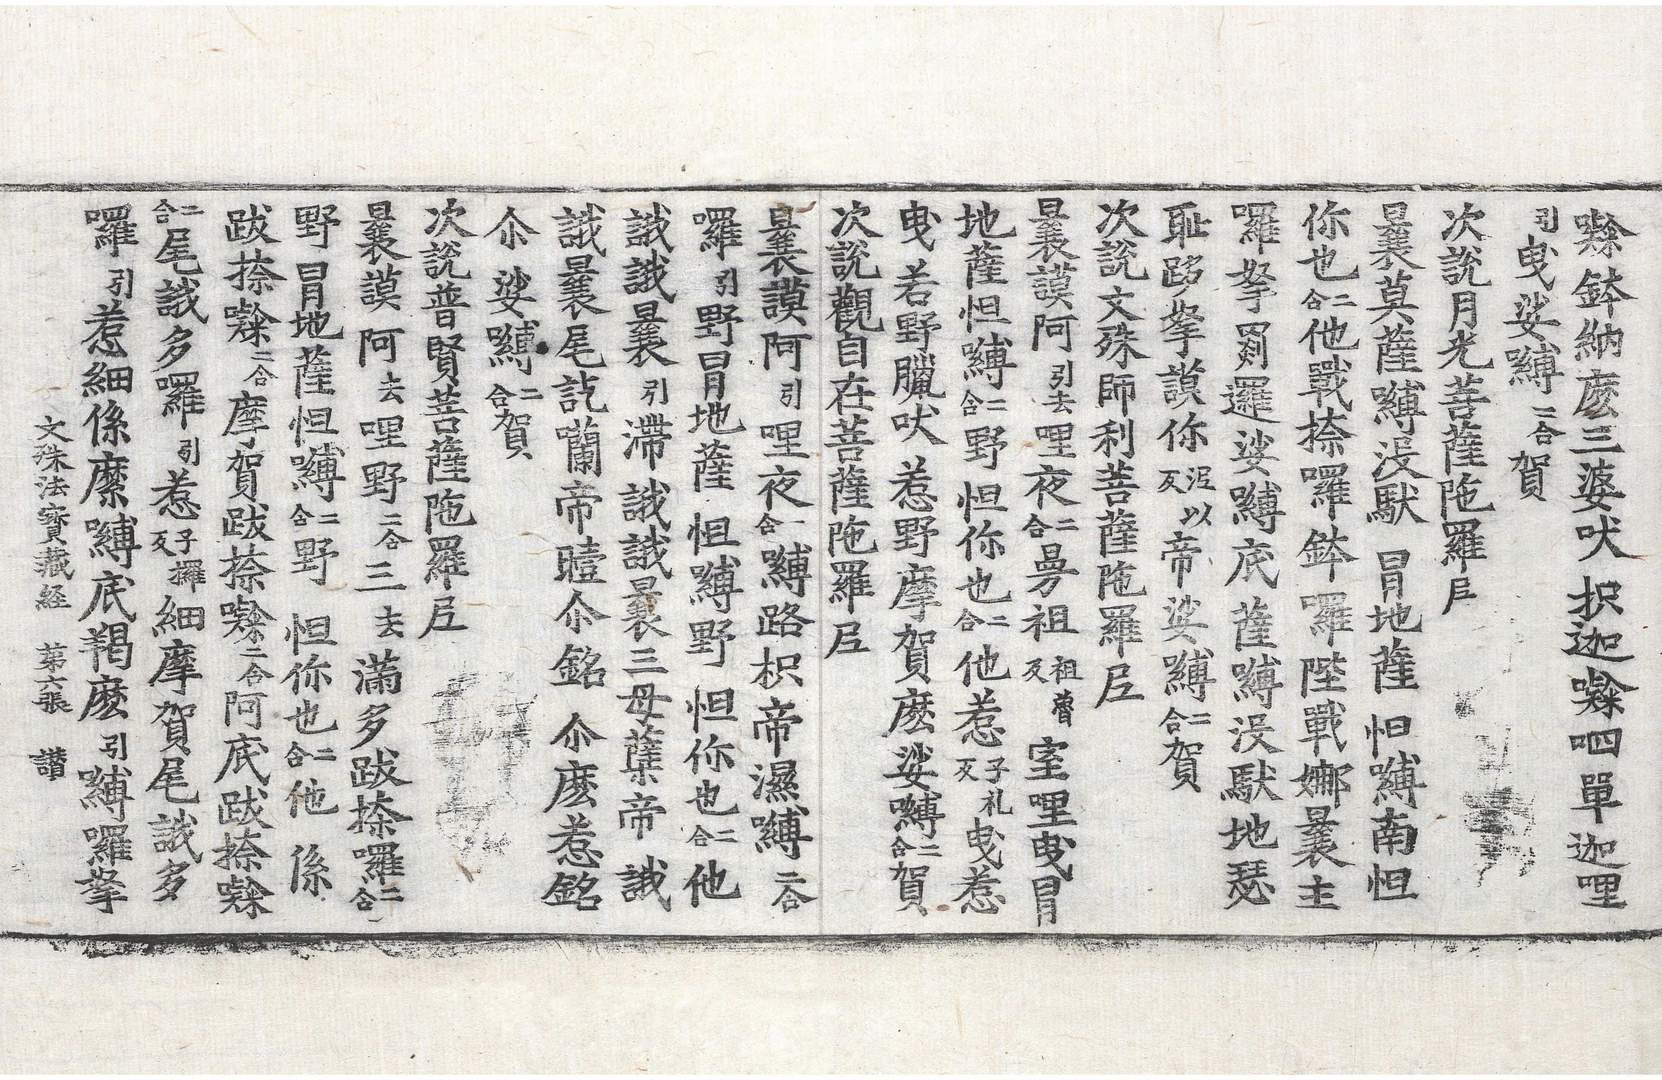 嚟鉢納麽三婆吠枳迦嚟呬單迦哩
引曳娑嚩二合賀
次說月光菩薩陁羅尼
曩莫薩嚩没馱冐地薩怛嚩南怛
你也二合他戰捺囉鉢囉陛戰娜曩主
囉拏剡邏娑嚩底薩嚩没馱地瑟
耻跢拏謨你以泥反帝娑嚩二合賀
次說文殊師利菩薩陁羅尼
曩謨阿引去哩夜二合曼祖祖魯反室哩曳冐
地薩怛嚩二合野怛你也二合他惹子礼反曳惹
曳若野臘吠惹野摩賀麽娑嚩二合賀
次說觀自在菩薩陁羅尼
曩謨阿引哩夜二合嚩路枳帝濕嚩二合
囉引野冐地薩怛嚩野怛你也二合他
誐誐曩引滯誐誐曩三母蘗帝誐
誐曩尾訖囒帝曀尒銘尒麽惹銘
尒娑嚩二合賀
次說普賢菩薩陁羅尼
曩謨阿去哩野二合三去滿多跋捺囉二合
野冐地薩怛嚩二合野怛你也二合他係
跋捺嚟二合摩賀跋捺嚟二合阿底跋捺嚟
二合尾誐多囉引惹子攞反細摩賀尾誐多
囉引惹細係縻嚩底羯麽引嚩囉拏
文殊法寶藏経 第六張 讃